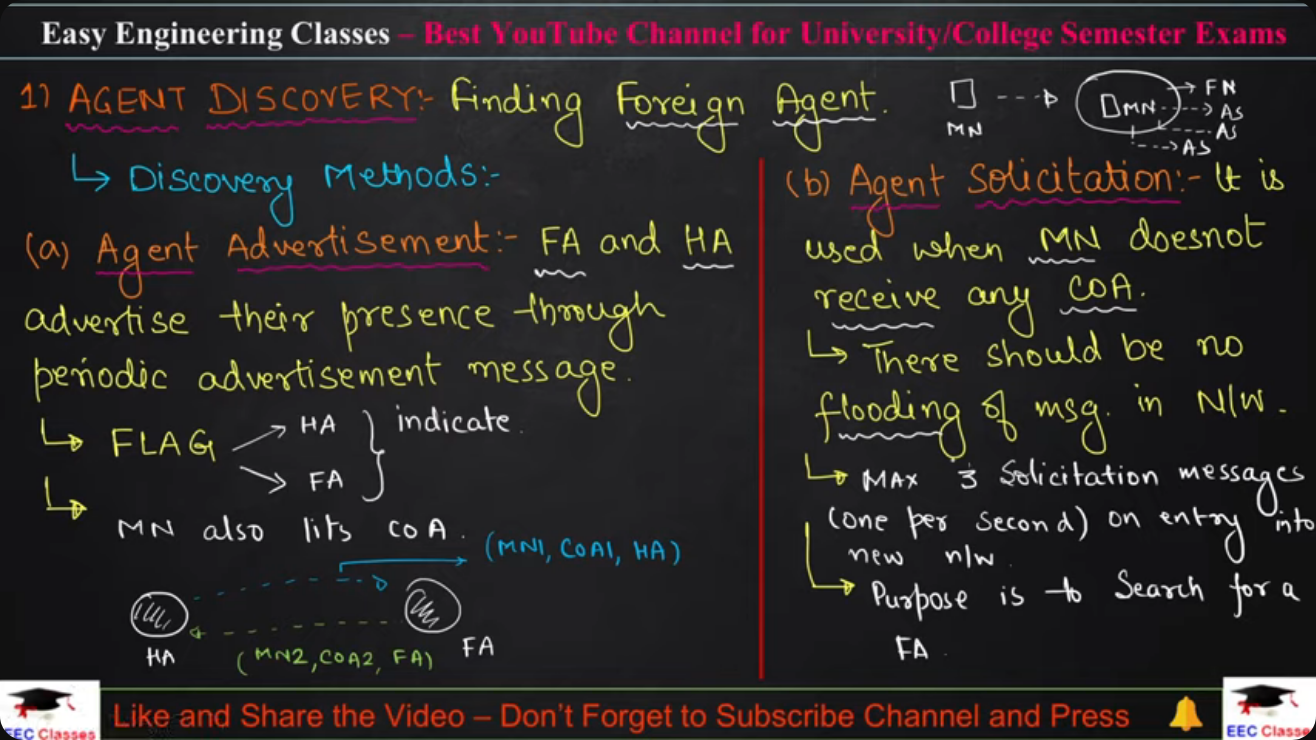 Easy Engineering Classes – Best YouTube Channel for University/College Semester Exams
1) AGENT DISCOVERY:- Finding Foreign Agent.
MN
MN
FN
AS
AS
AS
Discovery Methods:-
(a) Agent Advertisement:- FA and HA
advertise their presence through
periodic advertisement message.
FLAG
HA
FA
indicate.
MN also lits COA.
(MN1, COA1, HA)
HA
FA
(MN2, COA2, FA)
(b) Agent Solicitation:- It is
used when MN doesnot
receive any COA.
There should be no
flooding of msg. in N/W.
MAX 3 Solicitation messages
(one per second) on entry into
new n/w.
Purpose is to Search for a
FA.
EEC Classes
Like and Share the Video – Don't Forget to Subscribe Channel and Press
EEC Classe